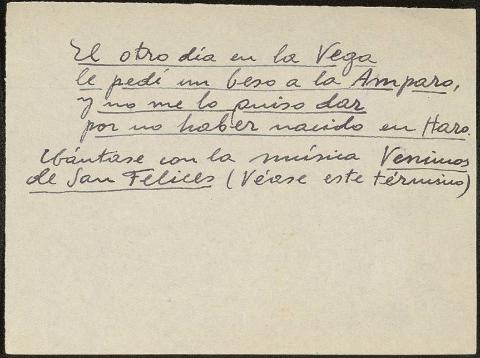 El otro día en la Vega
le pedí un beso a la Amparo,
y no me lo quiso dar
por no haber nacido en Haro.
Cántase con la música Venimos
de San Felices (Véase este término)